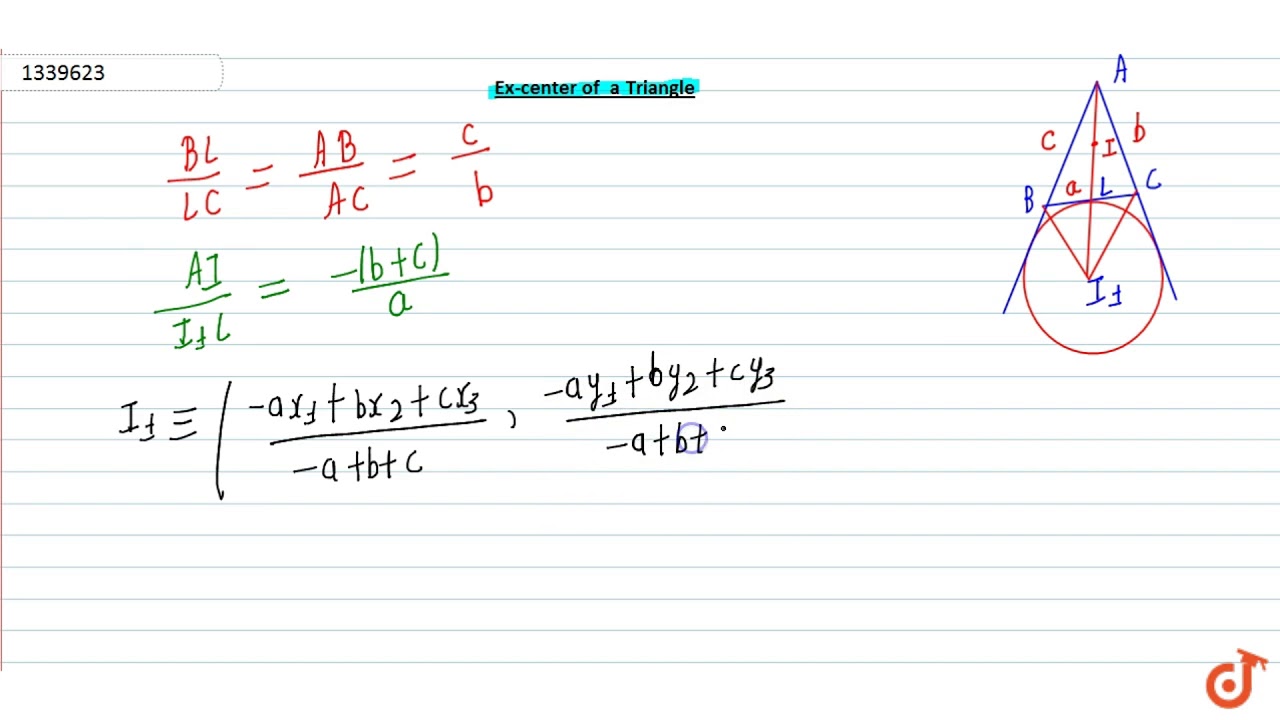 1339623
Ex-center of a Triangle
BL/LC = AB/AC = c/b
AI/I₁L = -(b+c)/a
I₁ ≡ ( -ax₁+bx₂+cx₃ / -a+b+c , -ay₁+by₂+cy₃ / -a+b+
A
c b
I
B a L C
I₁